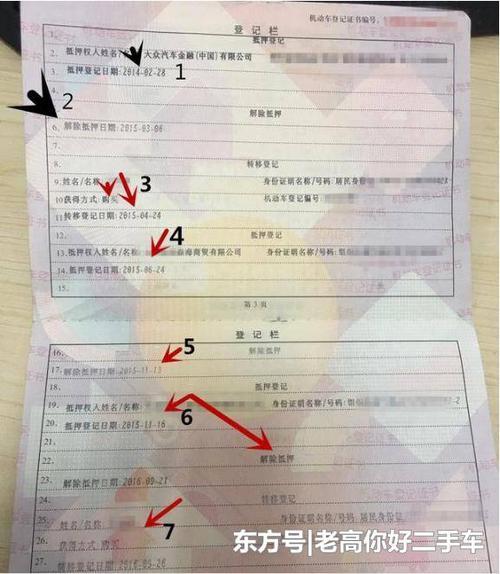 机动车登记证书编号:
登记栏
1. 抵押登记
2. 抵押权人姓名 大众汽车金融(中国)有限公司
3. 抵押登记日期:2014-02-28
1
4.
2
5. 解除抵押
6. 解除抵押日期:2015-03-06
7.
8. 转移登记
9. 姓名/名称 身份证明名称/号码:居民身份
3
10. 获得方式:购买 机动车登记编号:
11. 转移登记日期:2015-04-24
12. 抵押登记
4
13. 抵押权人姓名/名称 商贸有限公司 身份证明名称/号码:
14. 抵押登记日期:2015-06-24
15.
第3页
登记栏
16. 解除抵押
5
17. 解除抵押日期:2015-11-13
18. 抵押登记
19. 抵押权人姓名/名称: 身份证明名称/号码:
6
20. 抵押登记日期:2015-11-16
21.
22. 解除抵押
23. 解除抵押日期:2016-09-21
24. 转移登记
25. 姓名/名称
7
26. 获得方式:购买
27.
东方号|老高你好二手车